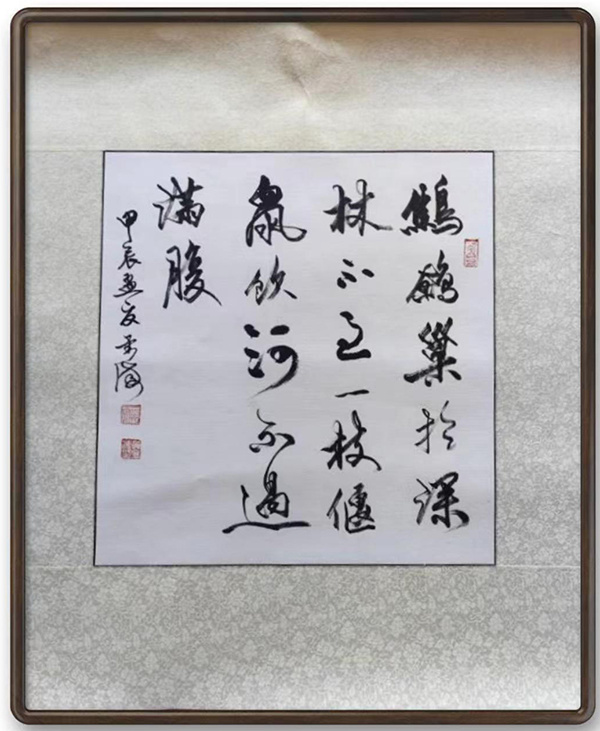 鷦鷯巢於深
林不過一枝偃
鼠飲河不過
滿腹
甲辰孟夏